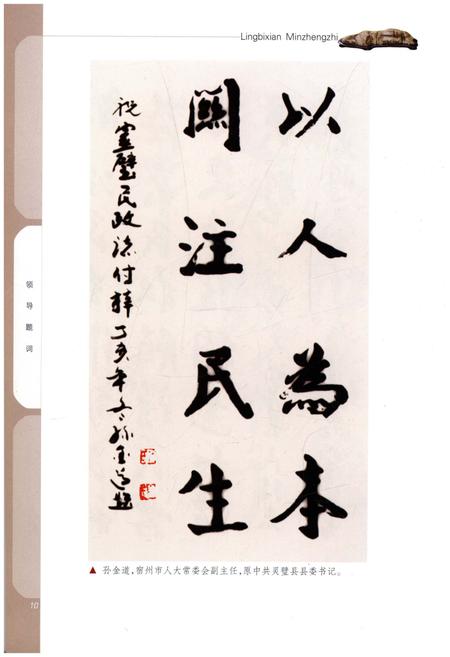 Lingbixian Minzhengzhi
以人為本
關注民生
祝靈璧民政志付梓丁亥年冬孫金道題
领导题词
▲ 孙金道,宿州市人大常委会副主任,原中共灵璧县县委书记。
10